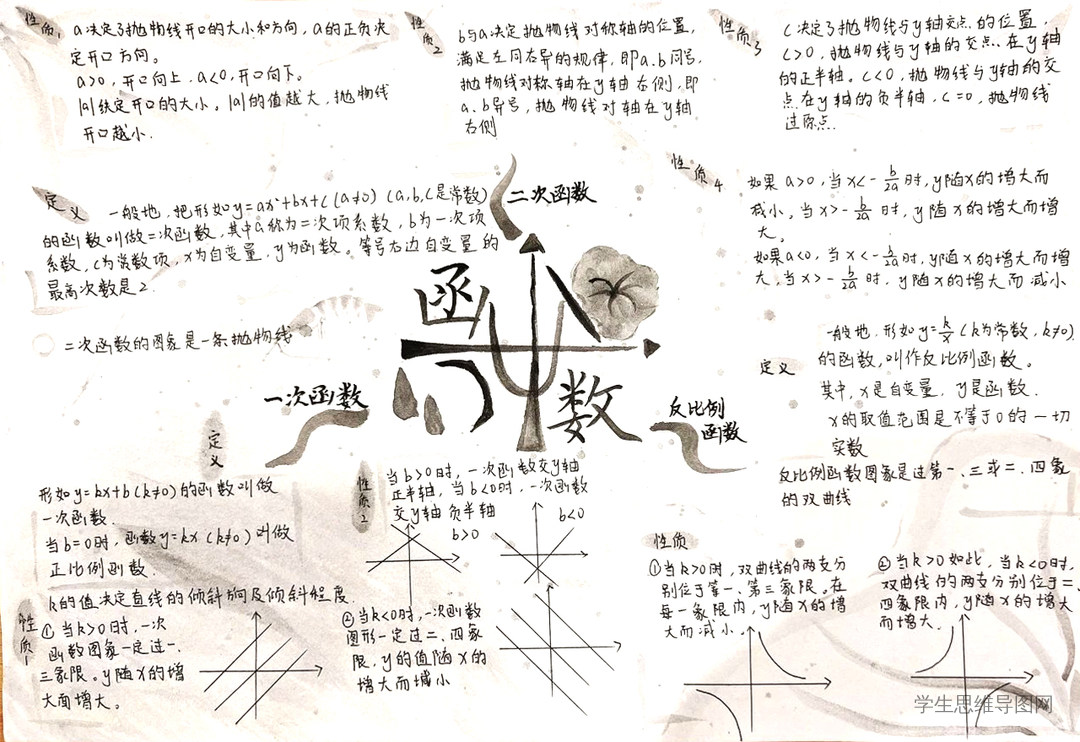 性质1
a决定了抛物线开口的大小和方向,a的正负决
定开口方向。
a>0,开口向上,a<0,开口向下。
|a|决定开口的大小。|a|的值越大,抛物线
开口越小.
性质2
b与a决定抛物线对称轴的位置,
满足左同右异的规律,即a.b同号,
抛物线对称轴在y轴左侧,即
a.b异号,抛物线对轴在y轴
右侧
性质3
C决定了抛物线与y轴交点的位置,
C>0,抛物线与y轴的交点.在y轴
的正半轴。C<0,抛物线与y轴的交
点在y轴的负半轴,C=0,抛物线
过原点.
性质4
如果a>0,当x<-b/2a时,y随x的增大而
减小。当x>-b/2a时,y随x的增大而增
大。
如果a<0,当x<-b/2a时,y随x的增大而增
大,当x>-b/2a时,y随x的增大而减小
定义
一般地,把形如y=ax²+bx+c(a≠0)(a,b,c是常数)
的函数叫做二次函数,其中a称为二次项系数,b为一次项
系数,c为常数项,x为自变量,y为函数。等号右边自变量的
最高次数是2.
二次函数的图象是一条抛物线
二次函数
函
数
一次函数
反比例
函数
定义
一般地.形如y=k/x(k为常数,k≠0)
的函数,叫作反比例函数。
其中,x是自变量,y是函数.
x的取值范围是不等于0的一切
实数
反比例函数图象是过第一、三或二、四象
的双曲线
定义
形如y=kx+b(k≠0)的函数叫做
一次函数.
当b=0时,函数y=kx(k≠0)叫做
正比例函数.
性质2
当b>0时,一次函数交y轴
正半轴,当b<0时,一次函数
交y轴负半轴
b>0
b<0
性质1
k的值决定直线的倾斜方向及倾斜程度.
①当k>0时,一次
函数图象一定过一、
三象限。y随x的增
大而增大。
②当k<0时,一次函数
图形一定过二、四象
限,y的值随x的
增大而减小
性质
①当k>0时,双曲线的两支分
别位于第一、第三象限。在
每一象限内,y随x的增
大而减小。
②当k>0如此,当k<0时,
双曲线的两支分别位于二
四象限内,y随x的增大
而增大.
学生思维导图网